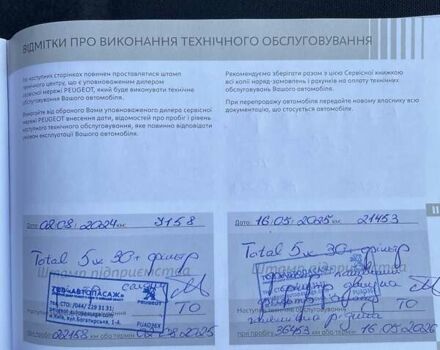 ВІДМІТКИ ПРО ВИКОНАННЯ ТЕХНІЧНОГО ОБСЛУГОВУВАННЯ
На наступних сторінках повинен проставлятися штамп
технічного центру, що є уповноваженим дилером
сервісної мережі PEUGEOT, який буде виконувати технічне
обслуговування Вашого автомобіля.
Вимагайте від обраного Вами уповноваженого дилера сервісної
мережі PEUGEOT внесення дати, відомостей про пробіг і рівень
наступного технічного обслуговування, яке повинно відповідати
умовам експлуатації Вашого автомобіля.
Рекомендуємо зберігати разом з цією Сервісною книжкою
всі копії наряд-замовлень і рахунків на оплату технічних
обслуговувань Вашого автомобіля.
При перепродажу автомобіля передайте новому власнику всю
документацію, що стосується автомобіля.
Дата 02.08.2024 км 7158
Total 5 30+ фільтр
Штамп підприємства
ТОВ «АВТОПАСАЖ»
тел. СТО: (044) 229 31 31
PEUGEOT
ТО
при пробігу 22158 км або термін 02.08.2025
Дата 16.05.2025 км 21453
Total 5 30+ фільтр
Штамп підприємства
фільтр
ТО
при пробігу 36453 км або термін 16.05.2026